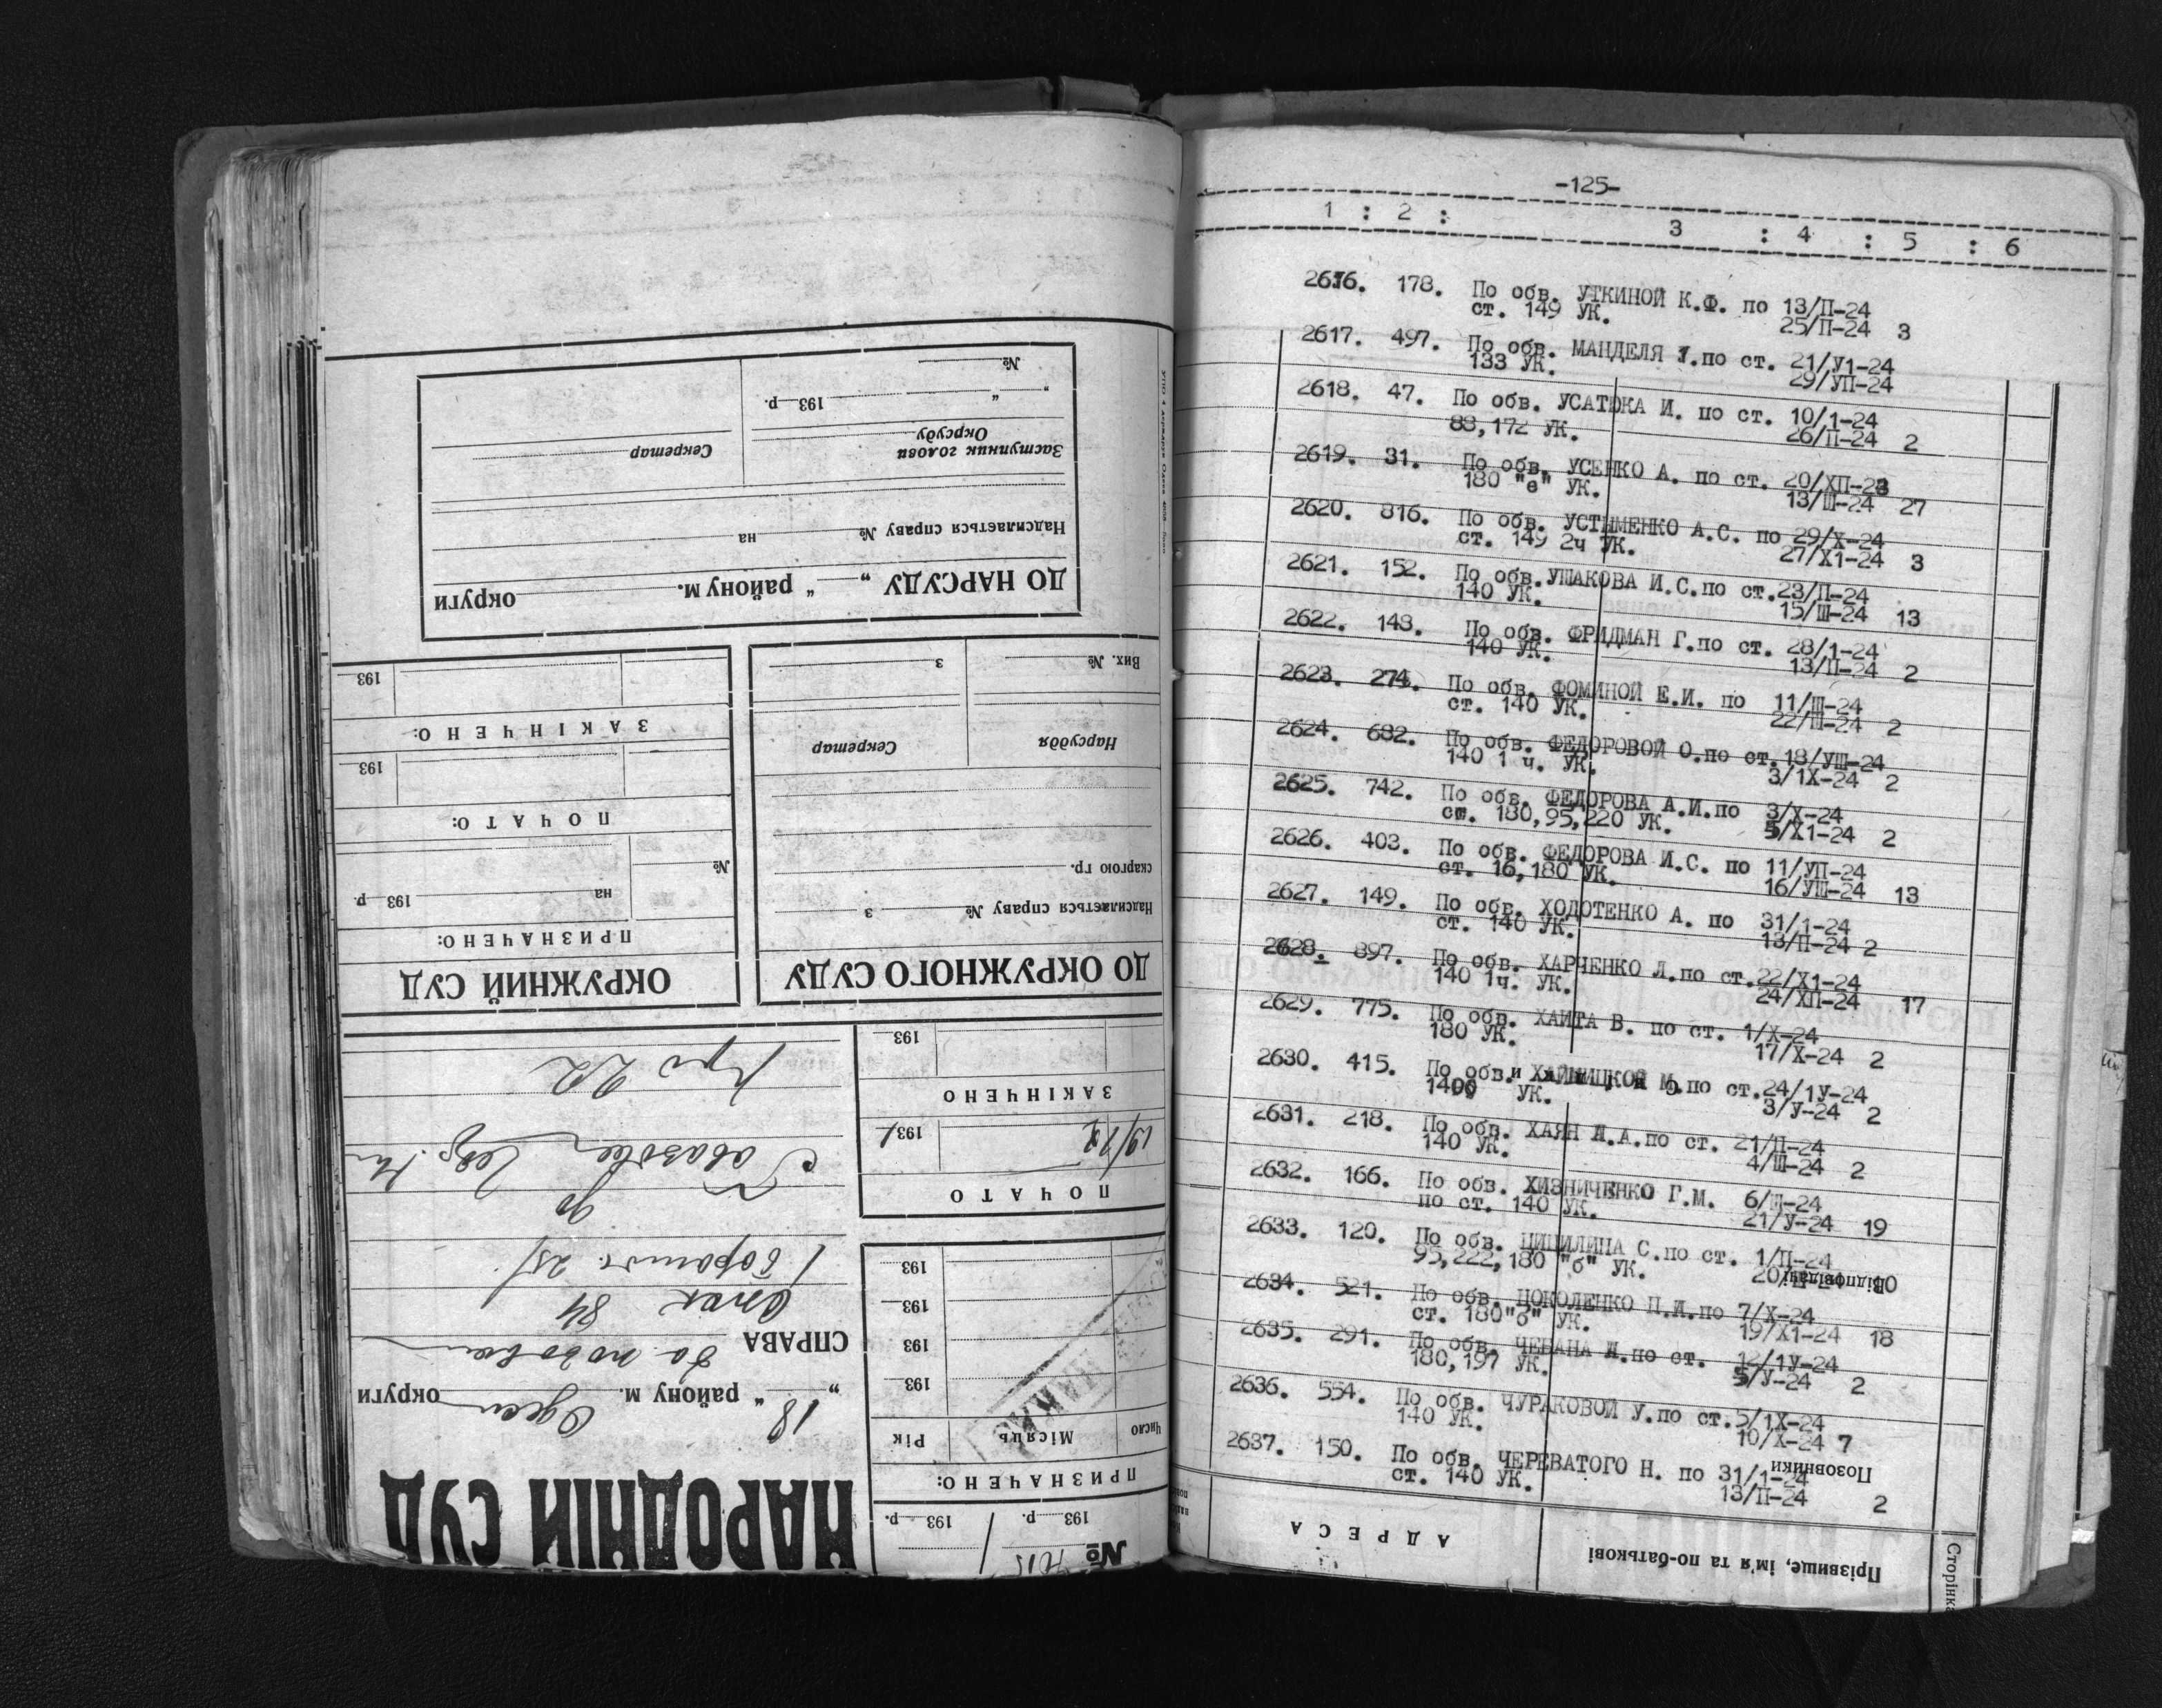 НАРОДНІЙ СУД
18 " району м. Одеси округи
СПРАВА
84
ПРИЗНАЧЕНО:
Число Місяць Рік
193
193
193
193
ПОЧАТО
193
ЗАКІНЧЕНО
193
№
193 р. 193 р.
ДО ОКРУЖНОГО СУДУ
Надсилається справу № з
скаргою гр.
Нарсуддя Секретар
Вих. № з
ОКРУЖНИЙ СУД
ПРИЗНАЧЕНО:
№ на 193 р.
ПОЧАТО:
193
ЗАКІНЧЕНО:
193
ДО НАРСУДУ „ " району м. округи
Надсилається справу № на
Заступник голови
Окрсуду Секретар
" " 193 р.
№
-125-
1 : 2 : 3 : 4 : 5 : 6
2616. 178. По обв. УТКИНОЙ К.Ф. по 13/П-24
ст. 149 УК. 25/П-24 3
2617. 497. По обв. МАНДЕЛЯ по ст. 21/У1-24
133 УК. 29/УП-24
2618. 47. По обв. УСАТЮКА И. по ст. 10/1-24
88,172 УК. 26/П-24 2
2619. 31. По обв. УСЕНКО А. по ст. 20/ХП-23
180 "е" УК. 13/Ш-24 27
2620. 816. По обв. УСТИМЕНКО А.С. по 29/Х-24
ст. 149 2ч УК. 27/Х1-24 3
2621. 152. По обв.УШАКОВА И.С.по ст.23/П-24
140 УК. 15/Ш-24 13
2622. 148. По обв. ФРИДМАН Г.по ст. 28/1-24
140 УК. 13/П-24 2
2623. 274. По обв. ФОМИНОЙ Е.И. по 11/Ш-24
ст. 140 УК. 22/Ш-24 2
2624. 682. По обв. ФЕДОРОВОЙ О.по ст.18/УШ-24
140 1 ч. УК. 3/1Х-24 2
2625. 742. По обв. ФЕДОРОВА А.И.по 3/Х-24
ст. 180,95,220 УК. 5/Х1-24 2
2626. 403. По обв. ФЕДОРОВА И.С. по 11/УП-24
ст. 16,180 УК. 16/УШ-24 13
2627. 149. По обв. ХОДОТЕНКО А. по 31/1-24
ст. 140 УК. 13/П-24 2
2628. 897. По обв. ХАРЧЕНКО Л.по ст.22/Х1-24
140 1ч. УК. 24/ХП-24 17
2629. 775. По обв. ХАИТА В. по ст. 1/Х-24
180 УК. 17/Х-24 2
2630. 415. По обв. М.по ст.24/1У-24
140 УК. 3/У-24 2
2631. 218. По обв. ХАЯН И.А.по ст. 21/П-24
140 УК. 4/Ш-24 2
2632. 166. По обв. ХИЗНИЧЕНКО Г.М. 6/Ш-24
по ст. 140 УК. 21/У-24 19
2633. 120. По обв. ЦИЦИЛИНА С.по ст. 1/П-24
95,222,180 "б" УК.
2634. 521. По обв. ЦОКОЛЕНКО П.И.по 7/Х-24
ст. 180"б" УК. 19/Х1-24 18
2635. 291. По обв. ЧЕБАНА И.по ст. 12/1У-24
180,197 УК. 5/У-24 2
2636. 554. По обв. ЧУРАКОВОЙ У.по ст.5/1Х-24
140 УК. 10/Х-24 7
2637. 150. По обв. ЧЕРЕВАТОГО Н. по 31/1-24
ст. 140 УК. 13/П-24 2
Сторінка
Прізвище, ім'я та по-батькові
АДРЕСА
Позовники
Відповідачі